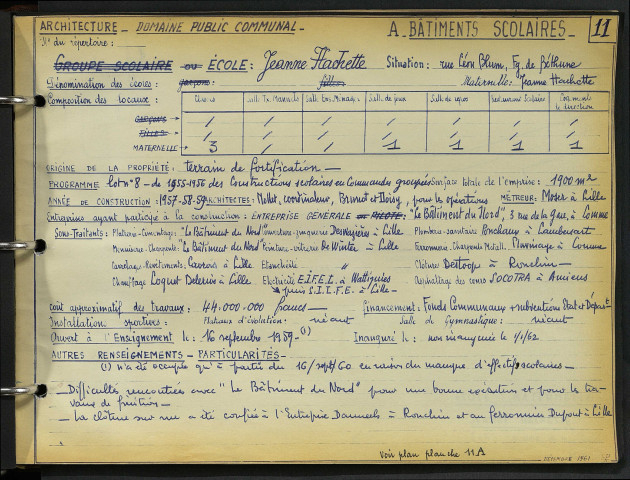 ARCHITECTURE - DOMAINE PUBLIC COMMUNAL - A - BÂTIMENTS SCOLAIRES - 11
N° du répertoire :
GROUPE SCOLAIRE ou ÉCOLE : Jeanne Hachette Situation : rue Léon Blum, Fg. de Béthune
Dénomination des écoles : garçons : filles : Maternelle : Jeanne Hachette
Composition des locaux : Classes Salle Tx. Manuels Salle Ens. Ménager Salle de jeux Salle de repos Restaurant Scolaire Logements de direction
GARÇONS / / / / / / /
FILLES / / / / / / /
MATERNELLE 3 / / 1 1 1 1
ORIGINE DE LA PROPRIÉTÉ : terrain de fortification -
PROGRAMME Lot n° 8 - de 1955-1956 des Constructions scolaires en Commandes groupées Surface totale de l'emprise : 1900 m²
ANNÉE DE CONSTRUCTION : 1957-58-59 ARCHITECTES : Mollet, coordinateur, Brunet et Noisy, pour les opérations MÉTREUR : Moser à Lille
Entreprises ayant participé à la construction : ENTREPRISE GENERALE ou PILOTE : "Le Bâtiment du Nord", 3 rue de la Gare, à Lomme
Sous-Traitants : Plâtrerie-Cimentage : "Le Bâtiment du Nord" à Lille Plomberie-sanitaire à Lambersart
Menuiserie-Charpente : "Le Bâtiment du Nord" Peinture-vitrerie De Winter à Lille Ferronnerie, Charpente Métall.
Carrelage-Revêtements : à Lille Etanchéité " Clôture Destoop à Ronchin
Chauffage Loquet à Lille Electricité E.I.F.E.L. à Wattignies Asphaltage des cours SOCOTRA à Amiens
puis S.I.I.F.E. à Lille -
coût approximatif des travaux : 44.000.000 francs - Financement : Fonds Communaux + subventions Etat et Départ.
Installation sportives : Plateaux d'évolution : néant Salle de Gymnastique : néant
Ouvert à l'Enseignement le : 16 septembre 1959 - (1) Inauguré le : non inaugurée le 1/1/62
AUTRES RENSEIGNEMENTS - PARTICULARITÉS -
(1) n'a été occupée qu'à partir du 16/sept/60 en raison du manque d'effectifs scolaires -
- Difficultés rencontrées avec "Le Bâtiment du Nord" pour une bonne exécution et pour les travaux de finition -
- La clôture sur rue a été confiée à l'Entreprise à Ronchin et au ferronnier Dupont à Lille
Voir plan planche 11 A
DÉCEMBRE 1961